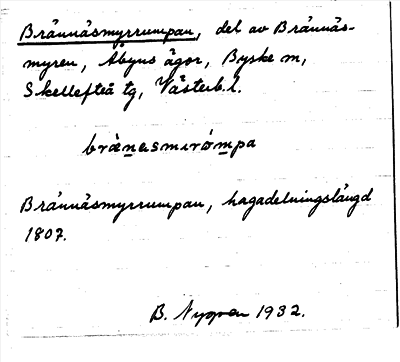 Brännäsmyrrumpan, del av Brännäs-
myren, Åbyns ägor, Byske sn,
Skellefteå tg, Västerb.l.
brä̀nasmırómpa
Brännäsmyrrumpan, hagadelningslängd
1807.
B. Nygren 1932.